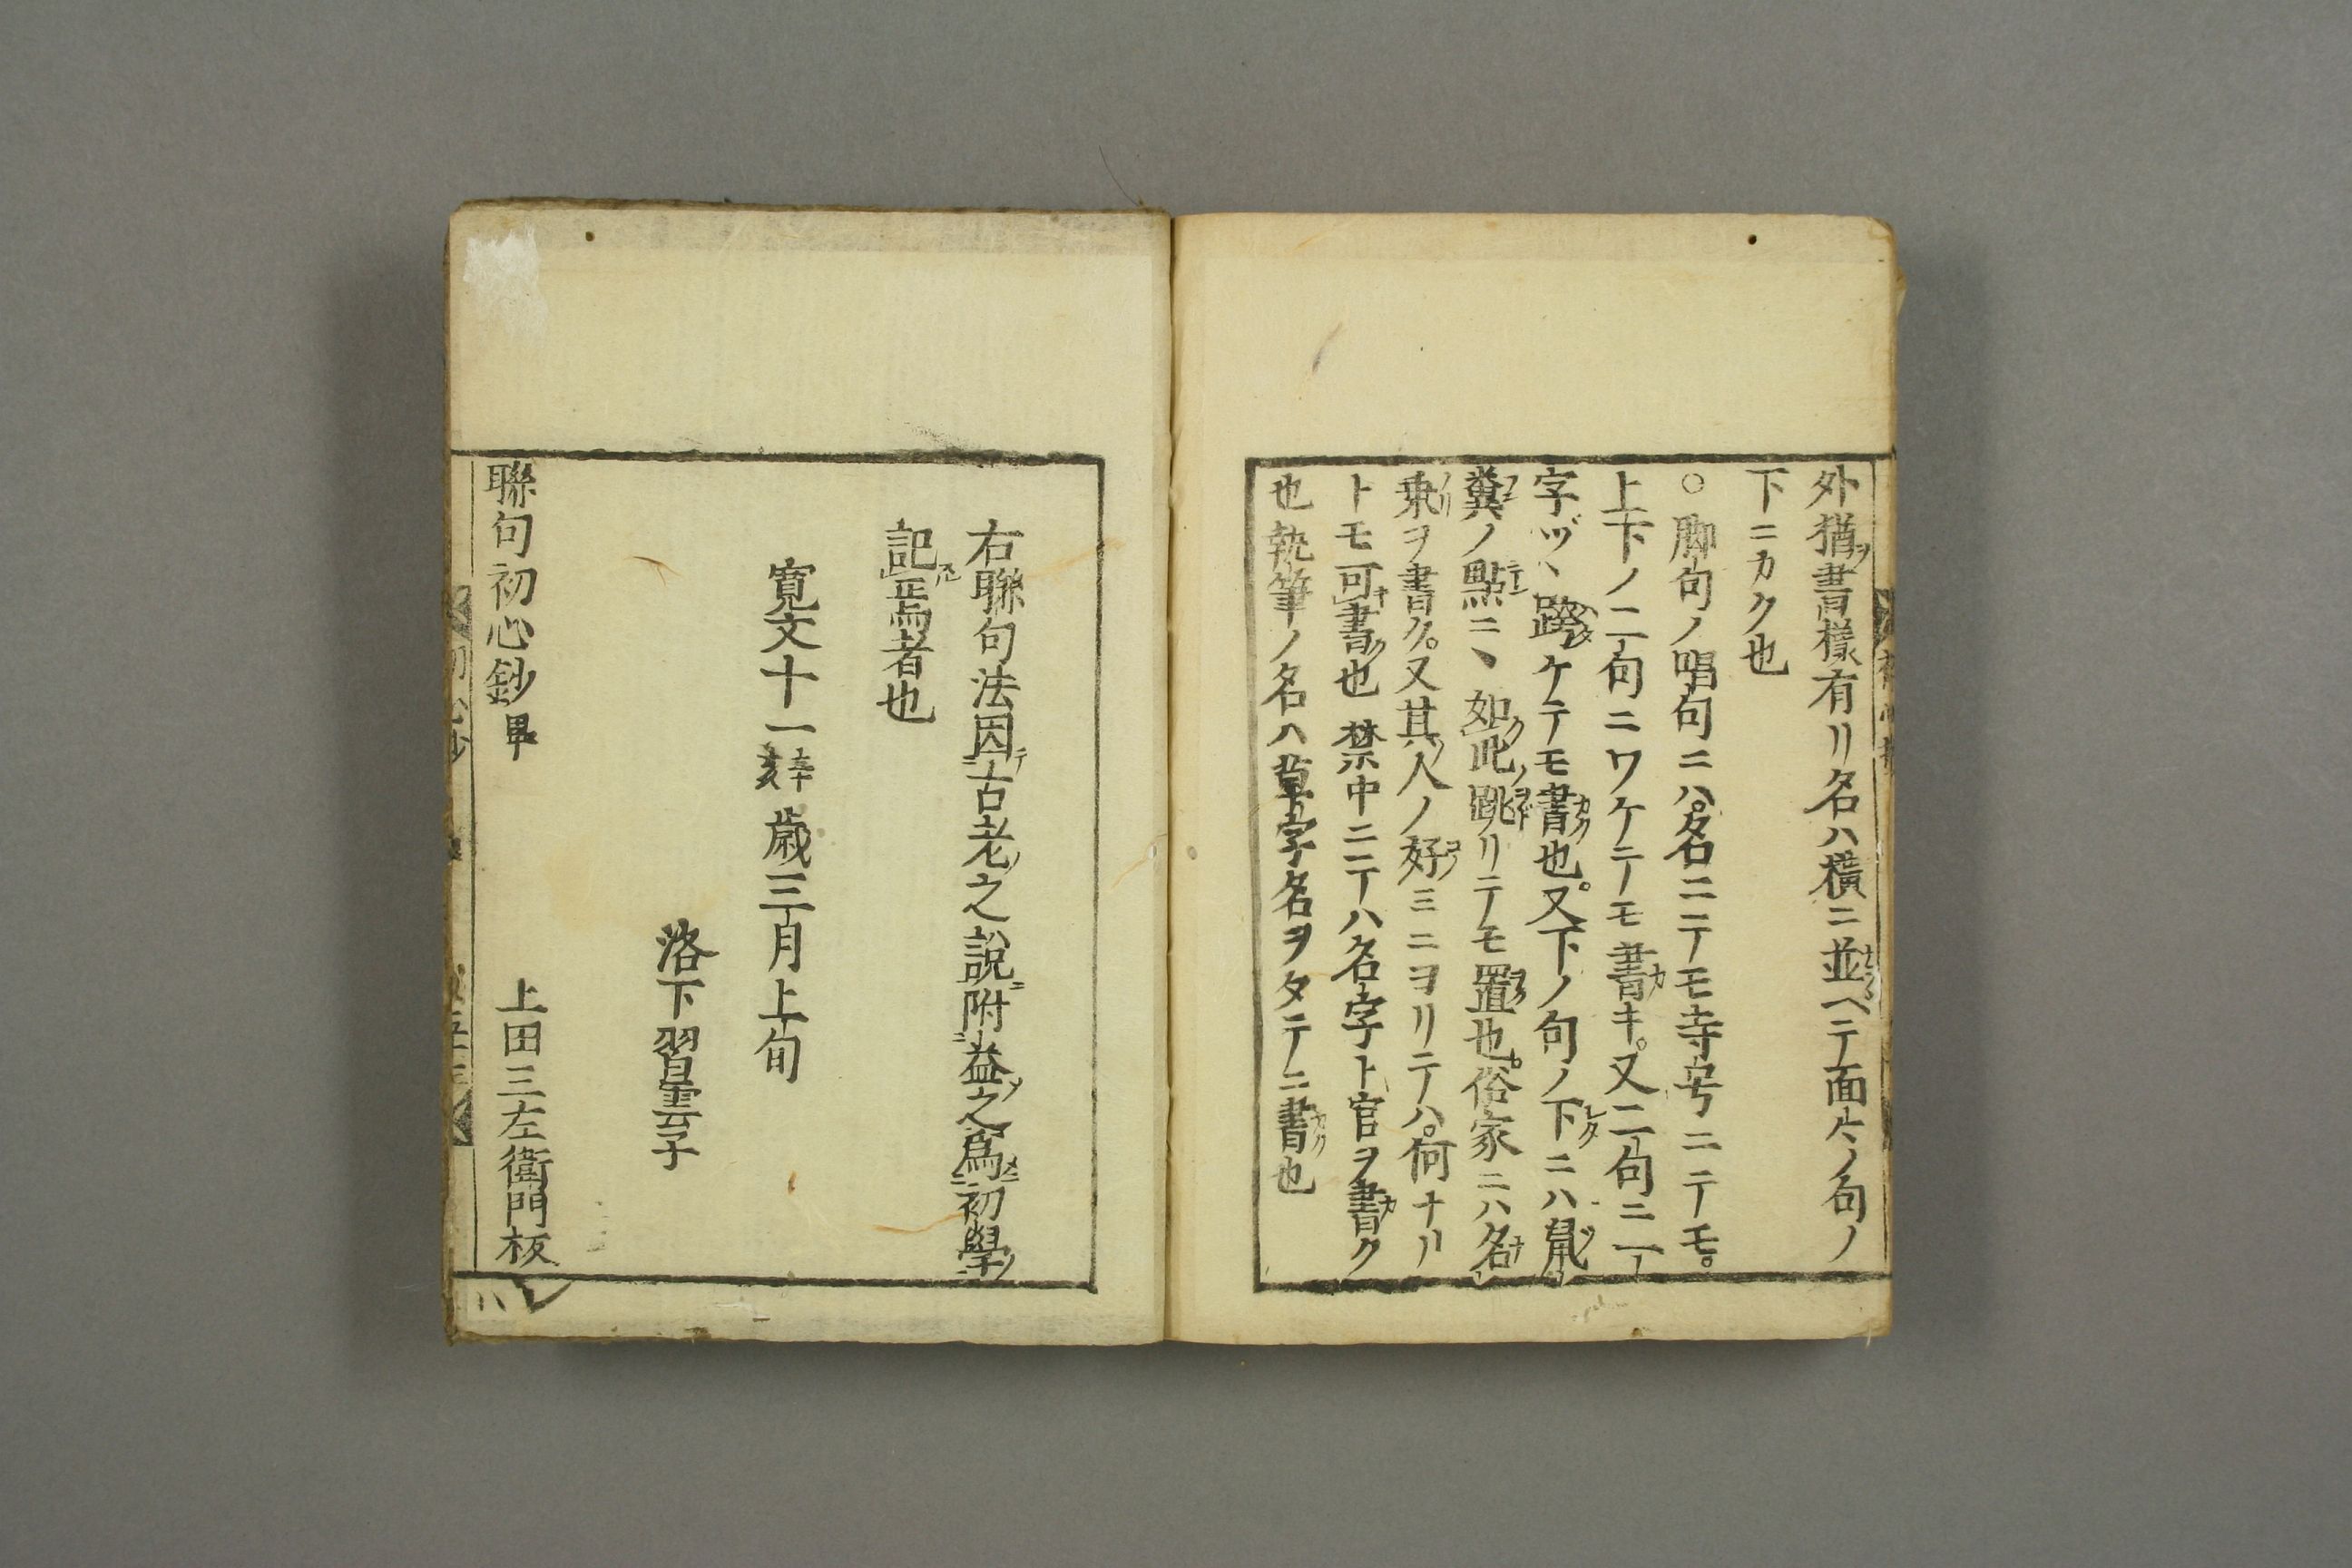 外猶書樣有リ名ハ橫ニ並ヘテ面々ノ句ノ
下ニカク也
○脚句ノ唱句ニハ名ニテモ寺号ニテモ
上下ノ二句ニワケテモ書キ又二句ニ一
字ヅヽ跨ケテモ書也又下ノ句ノ下ニハ鼠
糞ノ點ニヽ如此跳リテモ置也俗家ニハ名
乘ヲ書ク又其人ノ好ミニヨリテハ何ナリ
トモ可書也禁中ニテハ名字ト官ヲ書ク
也執筆ノ名ハ草字名ヲタテニ書也
右聯句法因古老之說附益之爲初學
記焉者也
寛文十一辛亥歳三月上旬
洛下習雲子
聯句初心鈔畢
上田三左衛門板